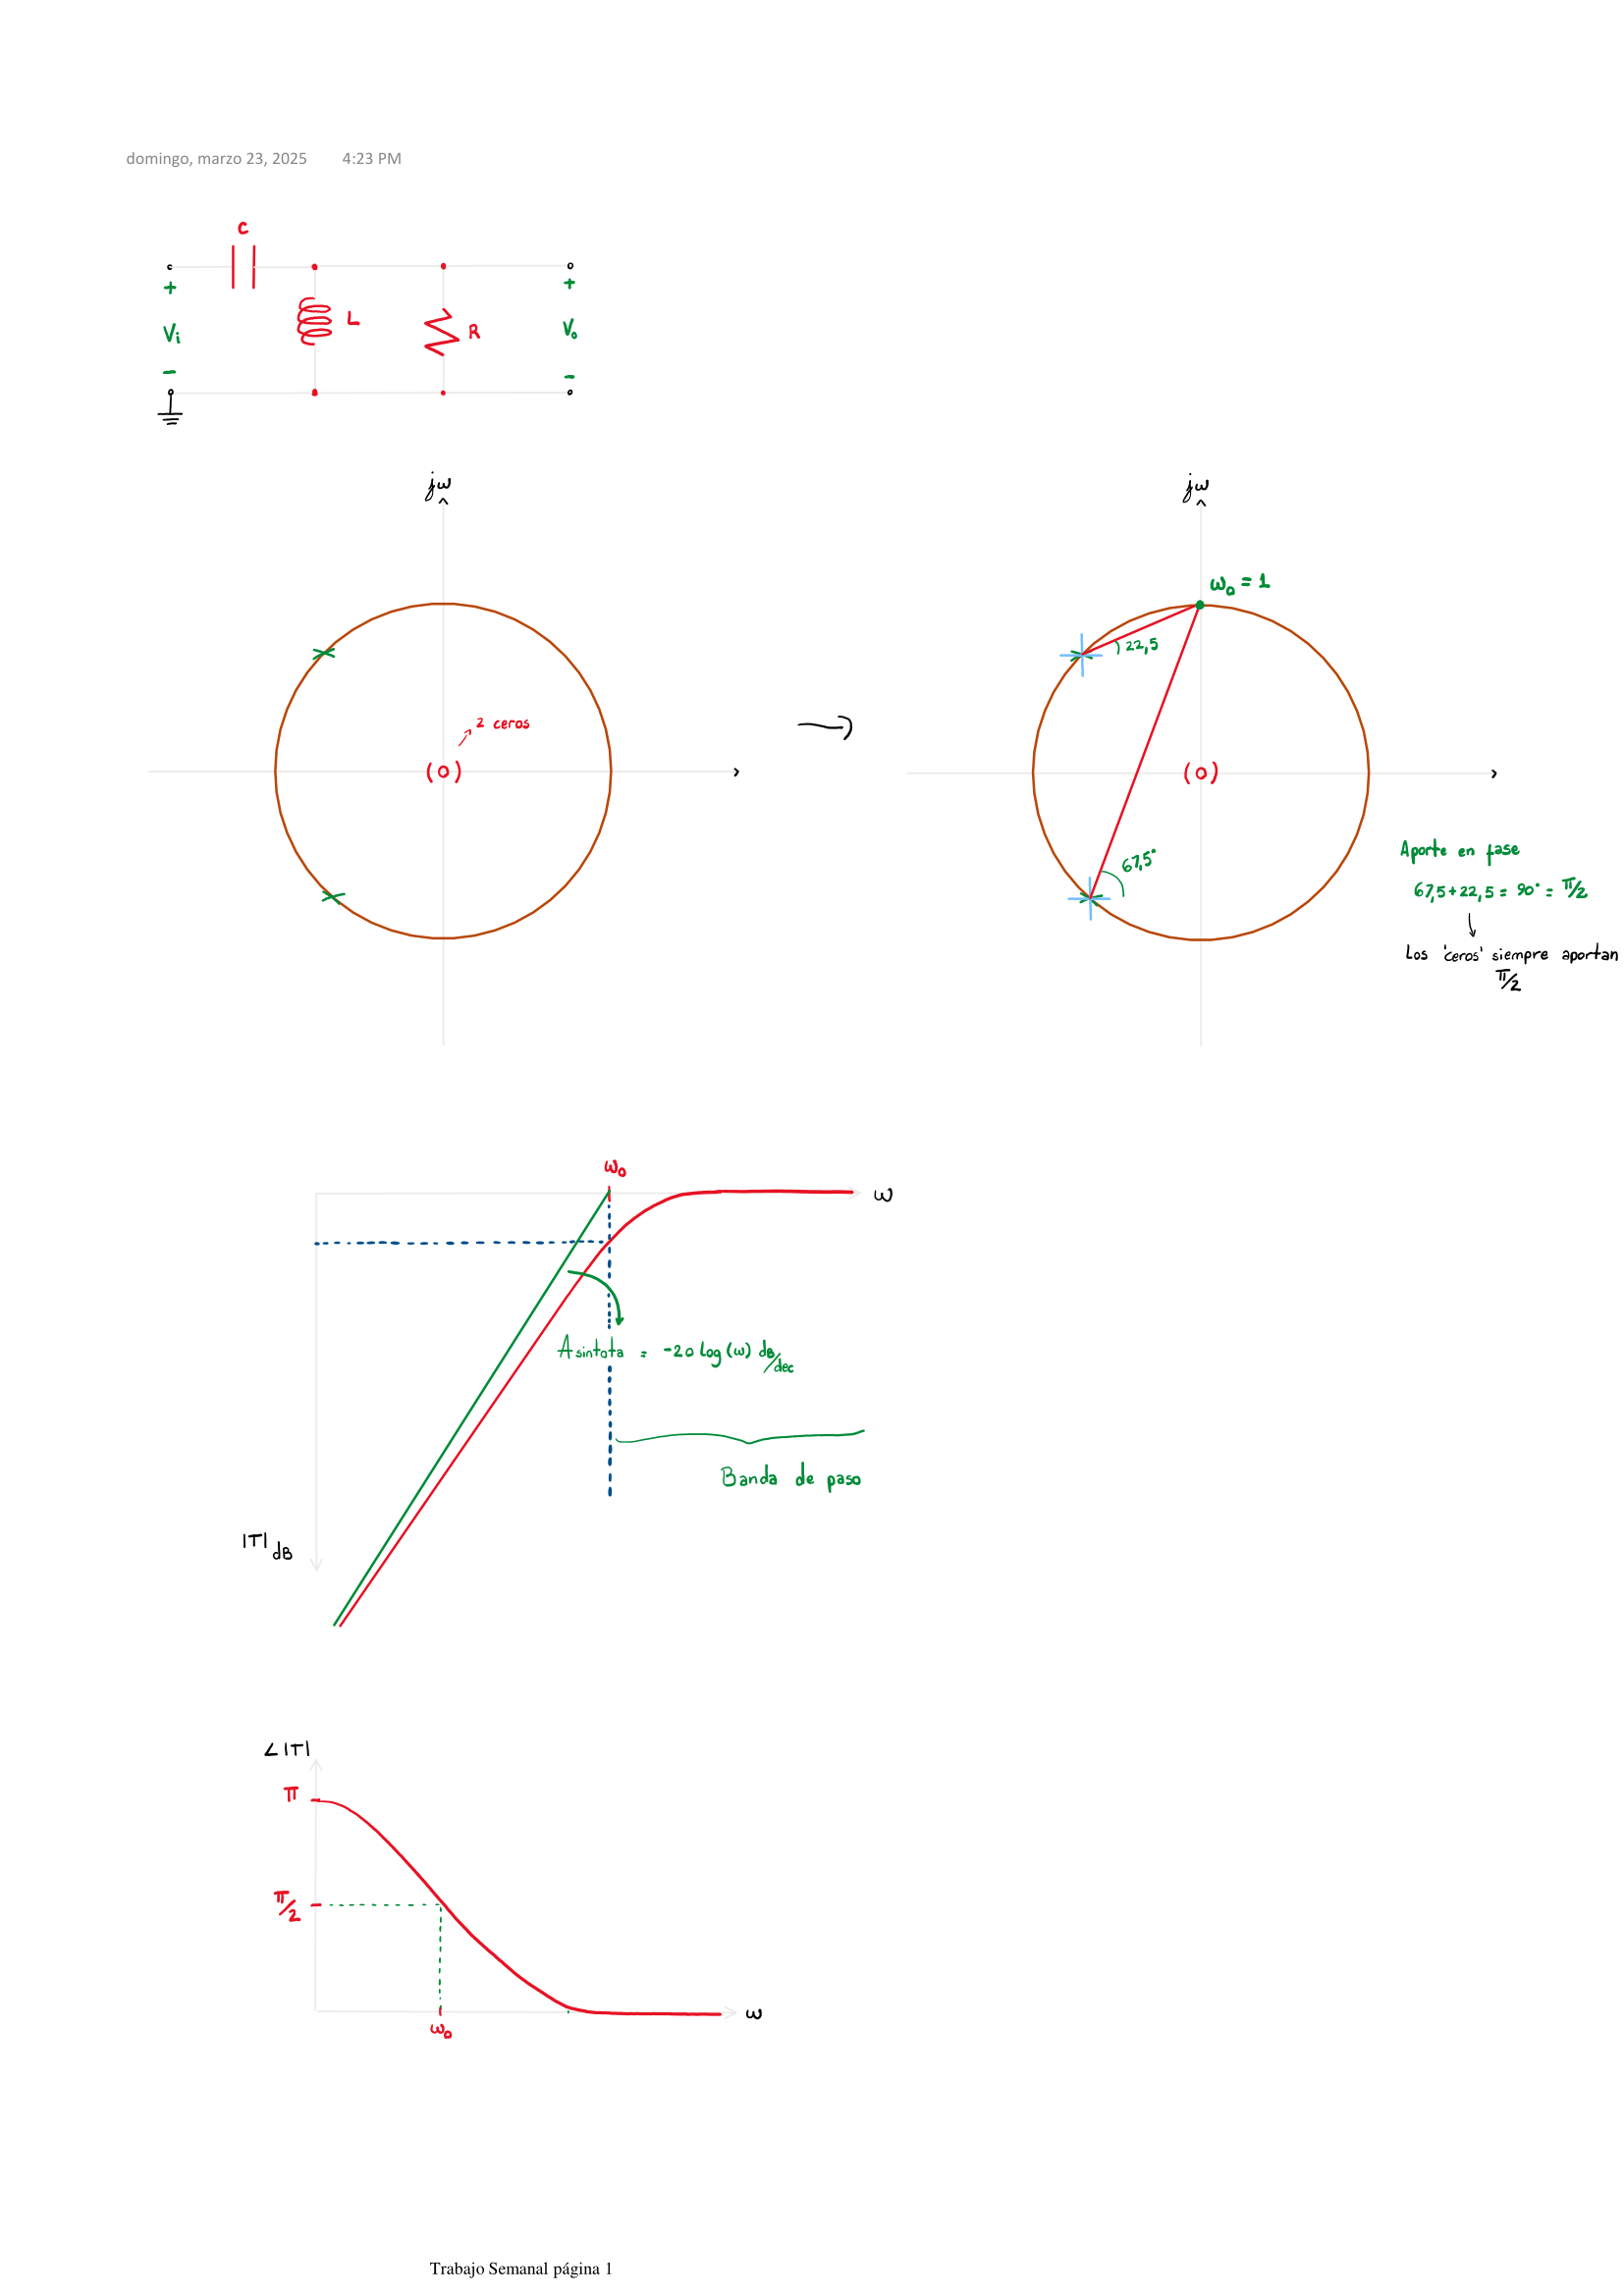 domingo, marzo 23, 2025 4:23 PM
C
+ +
L
Vi R Vo
- -
jω
2 ceros
(o)
jω
ω0 = 1
22,5
(o)
67,5°
Aporte en fase
67,5+22,5 = 90° = π/2
Los 'ceros' siempre aportan
π/2
ω0
ω
Asintota = -20 log(ω) dB/dec
Banda de paso
|T|dB
∠|T|
π
π/2
ω
ω0
Trabajo Semanal página 1